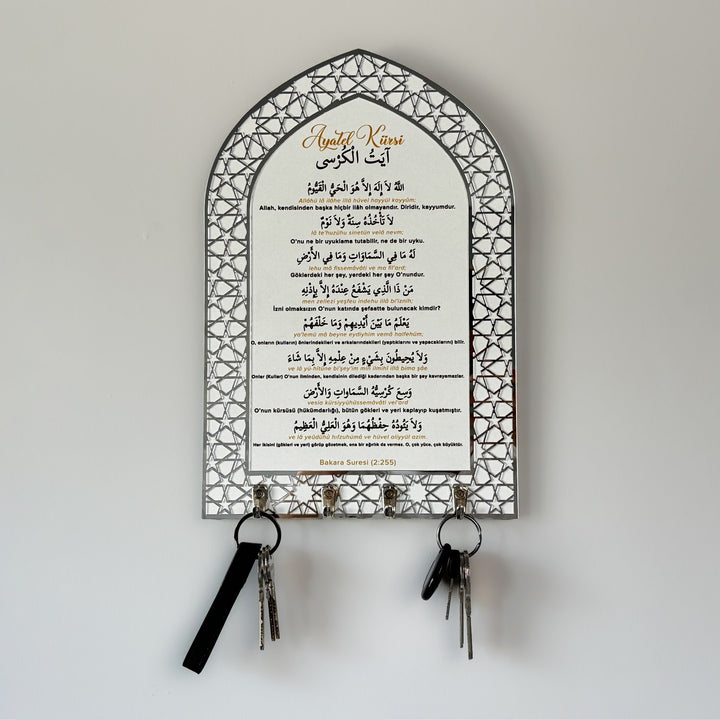 Ayatel Kürsi
آيَتُ الْكُرْسى
اَللّٰهُ لاَ إِلَهَ إِلاَّ هُوَ الْحَيُّ الْقَيُّومُ
Allâhü lâ ilâhe illâ hüvel hayyül kayyûm;
Allah, kendisinden başka hiçbir ilâh olmayandır. Diridir, kayyumdur.
لاَ تَأْخُذُهُ سِنَةٌ وَلاَ نَوْمٌ
lâ te'huzühu sinetün velâ nevm;
O'nu ne bir uyuklama tutabilir, ne de bir uyku.
لَهُ مَا فِي السَّمَاوَاتِ وَمَا فِي الأَرْضِ
lehu mâ fissemâvâti ve ma fil'ard;
Göklerdeki her şey, yerdeki her şey O'nundur.
مَنْ ذَا الَّذِي يَشْفَعُ عِنْدَهُ إِلاَّ بِإِذْنِهِ
men zellezi yeşfeu indehu illâ bi'iznih;
İzni olmaksızın O'nun katında şefaatte bulunacak kimdir?
يَعْلَمُ مَا بَيْنَ أَيْدِيهِمْ وَمَا خَلْفَهُمْ
ya'lemü mâ beyne eydiyhim vemâ halfehüm;
O, onların (kulların) önlerindekileri ve arkalarındakileri (yaptıklarını ve yapacaklarını) bilir.
وَلاَ يُحِيطُونَ بِشَيْءٍ مِنْ عِلْمِهِ إِلاَّ بِمَا شَاءَ
ve lâ yü hîtûne bi'şey'im min ilmihî illâ bima şâe
Onlar (Kullar) O'nun ilminden, kendisinin dilediği kadarından başka bir şey kavrayamazlar.
وَسِعَ كُرْسِيُّهُ السَّمَاوَاتِ وَالأَرْضَ
vesia kürsiyyühüssemâvâti vel'ard
O'nun kürsüsü (hükümdarlığı), bütün gökleri ve yeri kaplayıp kuşatmıştır.
وَلاَ يَئُودُهُ حِفْظُهُمَا وَهُوَ الْعَلِيُّ الْعَظِيمُ
ve lâ yeûdühû hıfzuhümâ ve hüvel aliyyül azim.
Her ikisini (gökleri ve yeri) görüp gözetmek, ona bir ağırlık da vermez. O, çok yüce, çok büyüktür.
Bakara Suresi (2:255)